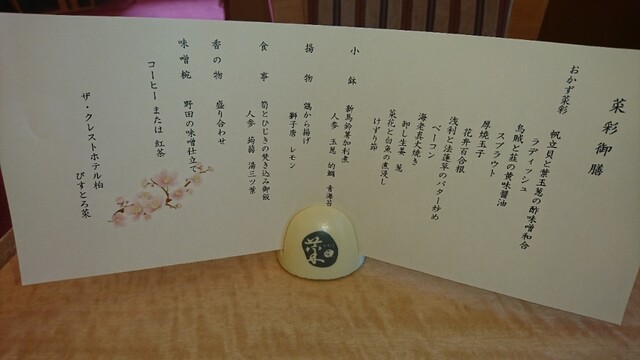 菜彩御膳
おかず菜彩
帆立貝と葉玉葱の酢味噌和合
ラディッシュ
烏賊と菰の黄味醤油
スプラウト
厚焼玉子
花弁百合根
浅利と法蓮草のバター炒め
ベーコン
海老真丈焼き
卸し生姜 葱
菜花と白魚の煮浸し
けずり節
小鉢 新馬鈴薯加利煮
人参 玉葱 的鯛 青海苔
揚物 鶏から揚げ
獅子唐 レモン
食事 筍とひじきの焚き込み御飯
人参 蒟蒻 湯三ツ葉
香の物 盛り合わせ
味噌椀 野田の味噌仕立て
コーヒーまたは 紅茶
ザ・クレストホテル柏
びすとろ菜
菜